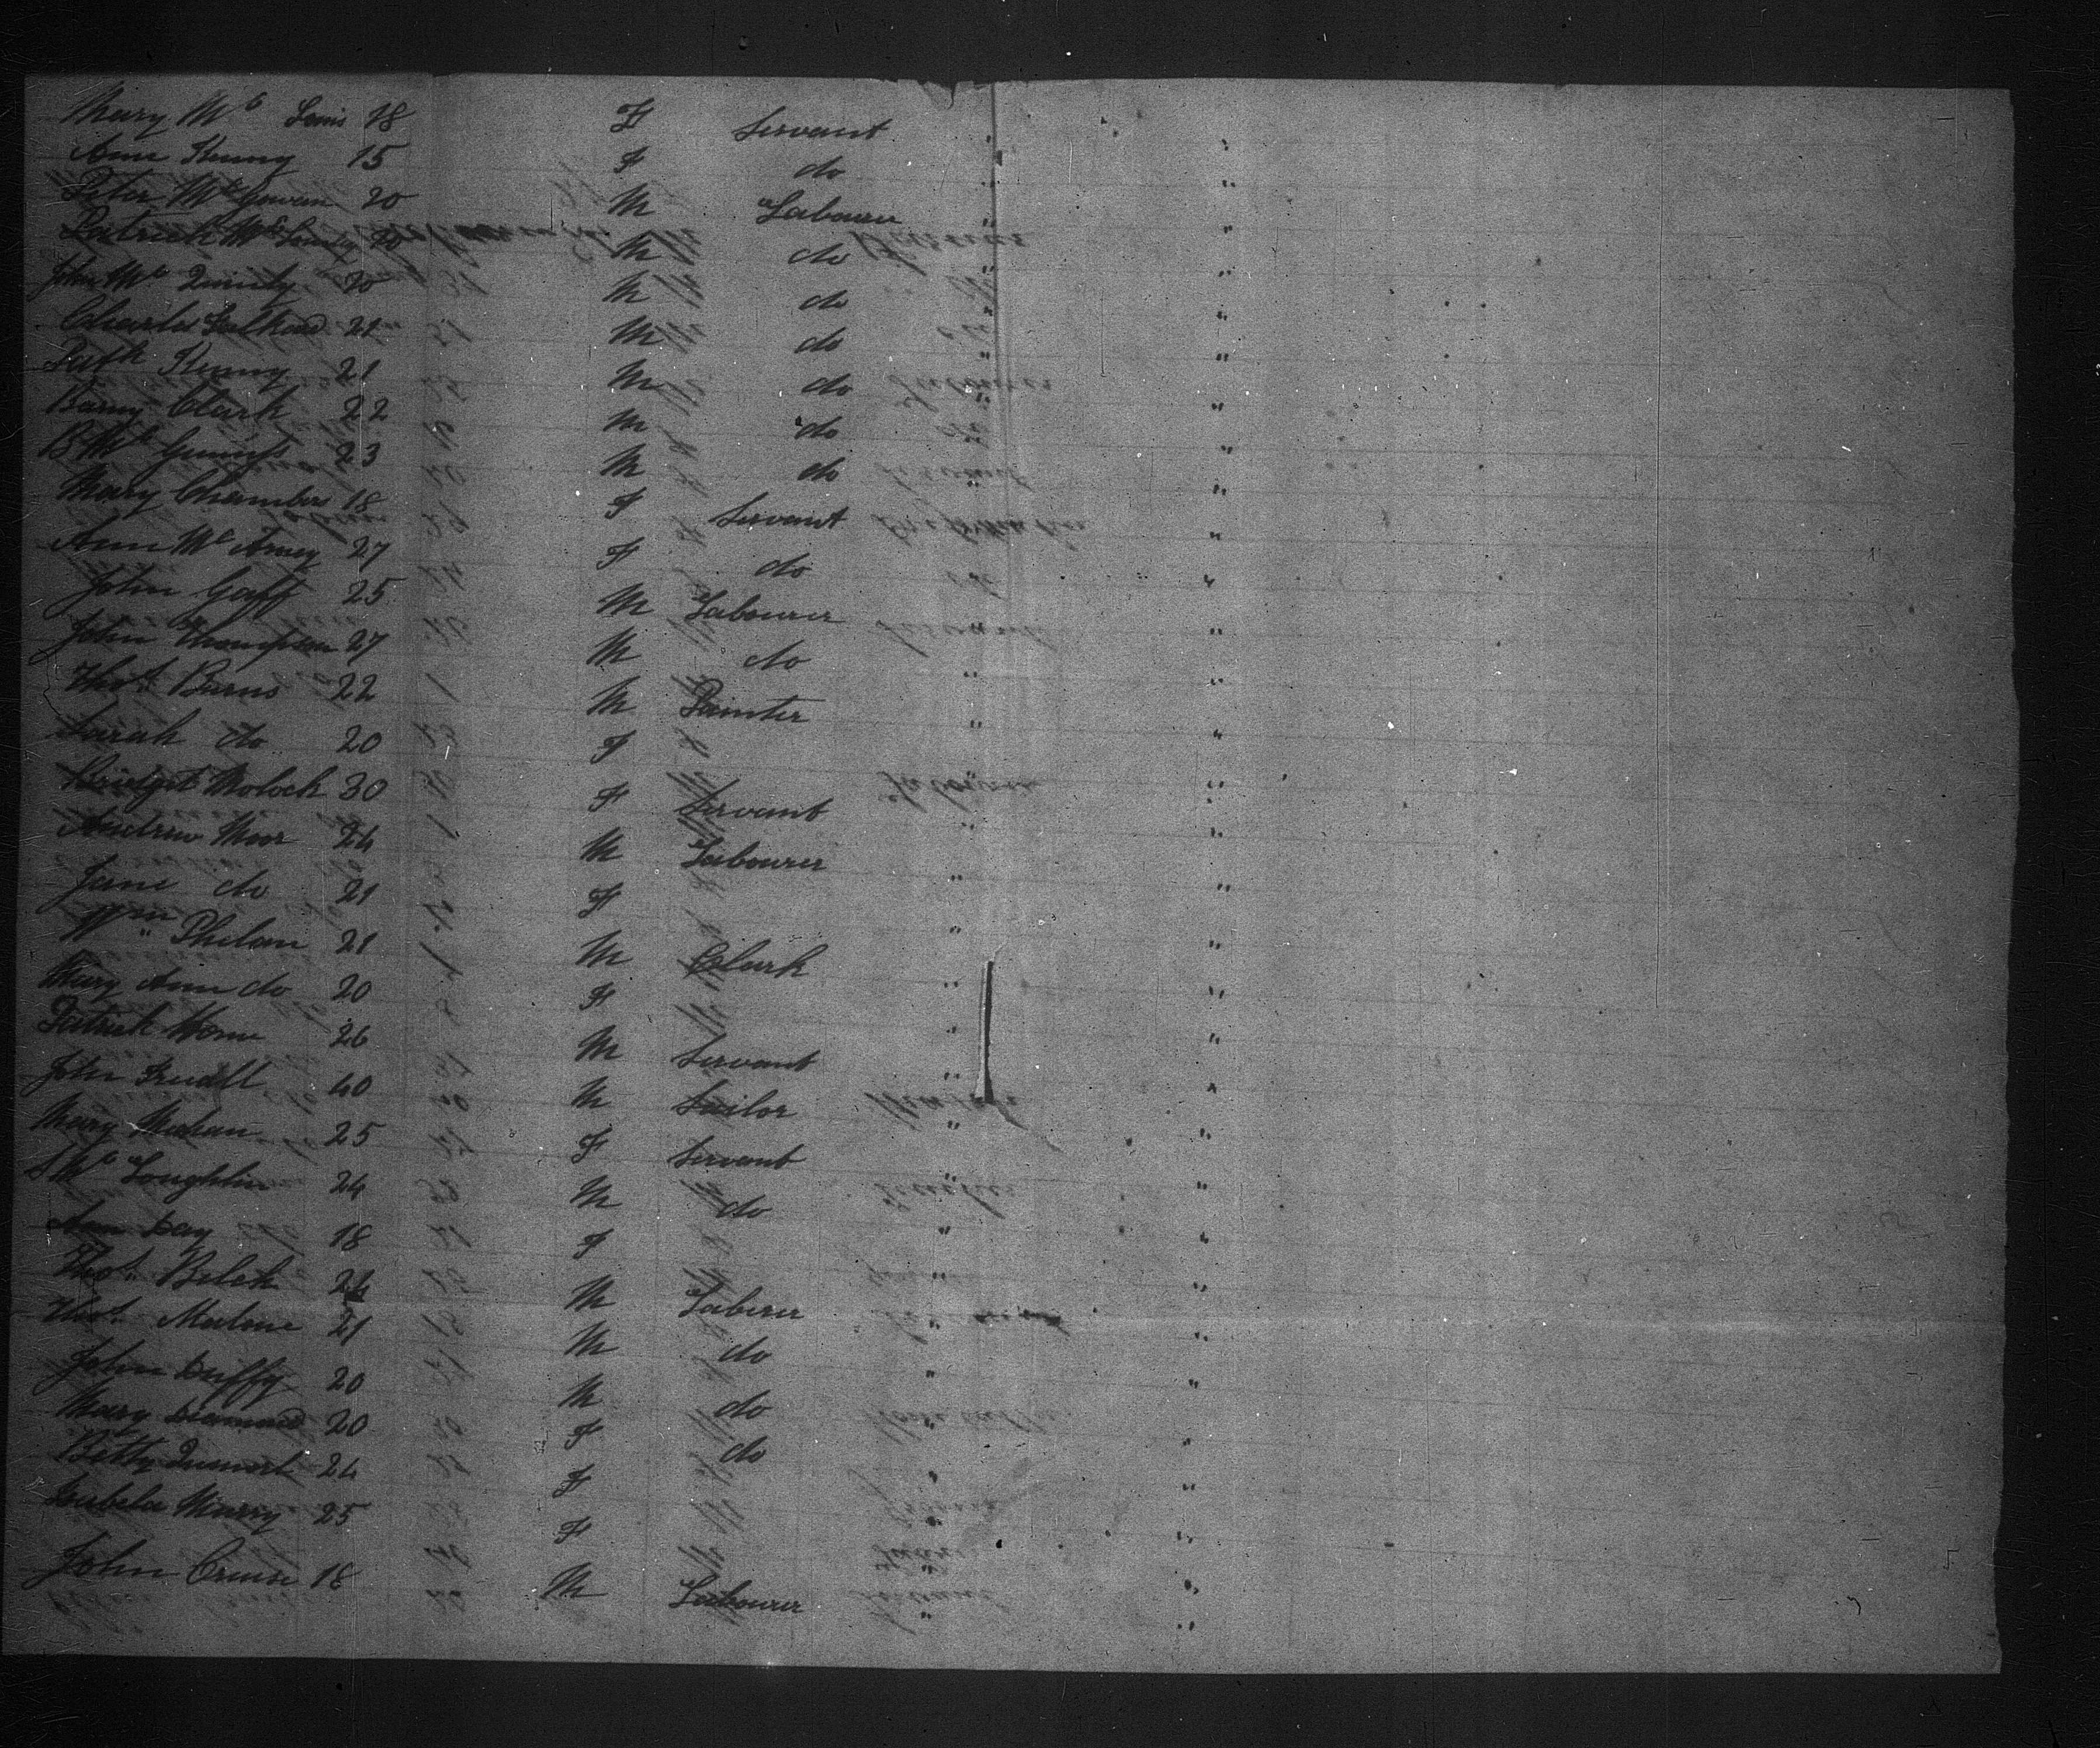 Mary Mc Lenis 18 F Servant " "
Ann Kenny 15 F do " "
Peter McGowan 20 M Labourer " "
Patrick Mc 20 M do " "
John Mc 20 M do " "
Charles 21 M do " "
Patk Kenny 21 M do " "
Barny Clark 22 M do " "
B Mc 23 M do " "
Mary Chambers 18 F Servant "
Ann Mc 27 F do "
John Gaff 25 M Labourer "
John Thompson 27 M do " "
Thos Burns 22 M Painter " "
Sarah do 20 F "
Bridget Moloch 30 F Servant " "
Andrew Moor 24 M Labourer " "
Jane do 21 F " "
Wm Phelan 21 M Clark " "
Mary Ann do 20 F "
Patrick Horne 26 M Servant " "
John 40 M Sailor " "
Mary Mahan 25 F Servant "
S Mc Loughlin 24 M do " "
Ann Day 18 F "
Thos Belch 24 M Laberer " "
Thos Malone 21 M do " "
John Duffy 20 M do " "
Mary Diamond 20 F do " "
Betty 24 F " "
Isabela Murry 25 F " "
John Cruise 18 M Labourer " "